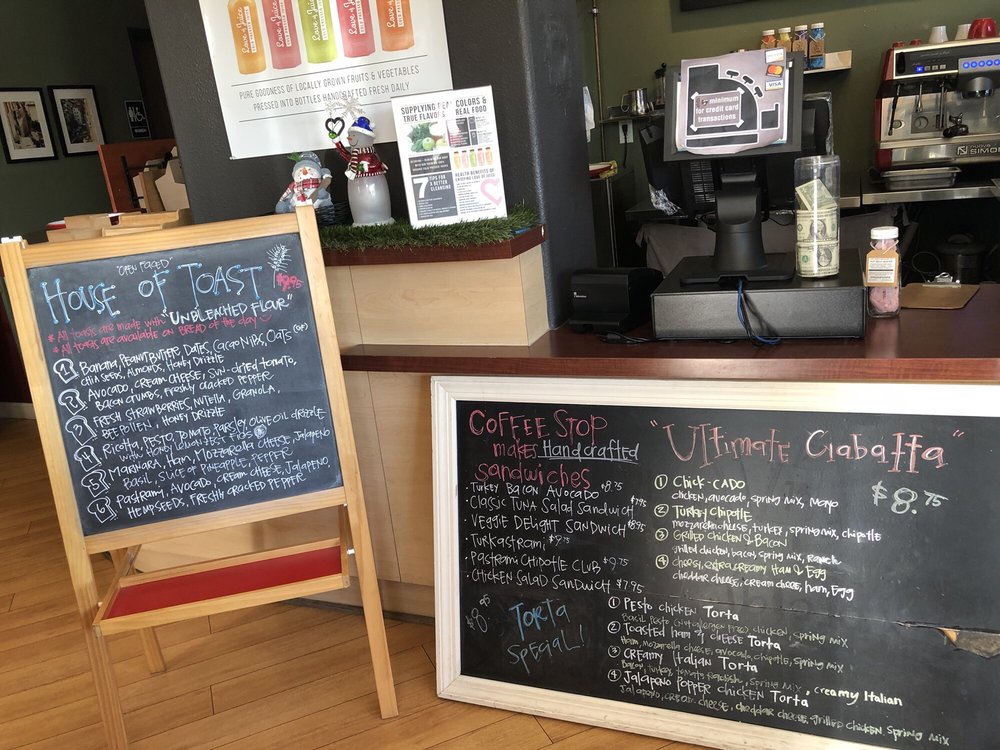 Love & Juice
Love & Juice
Love & Juice
Love & Juice
Love & Juice
PURE GOODNESS OF LOCALLY GROWN FRUITS & VEGETABLES
PRESSED INTO BOTTLES HANDCRAFTED FRESH DAILY
SUPPLYING REAL COLORS &
TRUE FLAVORS REAL FOOD
7 TIPS FOR A BETTER CLEANSING
HEALTH BENEFITS OF
ENJOYING LOVE OF JUICE
minimum
for credit card
transactions
VISA
nuova
SIMON
"OPEN FACED"
HOUSE OF TOAST
"UNBLEACHED FLOUR"
* All toasts are made with
* All toasts are available on BREAD of the day
1 Banana, Peanut Butter, Dates, Cacao Nibs, Oats (GF)
Chia seeds, Almonds, Honey Drizzle
2 Avocado, Cream Cheese, Sun-dried tomato,
Bacon crumbs, Freshly cracked pepper
3 Fresh Strawberries, Nutella, Granola,
Bee Pollen, Honey Drizzle
4 Ricotta, Pesto, Tomato, Parsley, Olive oil drizzle
with Honey
5 Marinara, Ham, Mozzarella Cheese, Jalapeno
Basil, Slice of Pineapple, Pepper
6 Pastrami, Avocado, Cream Cheese, Jalapeno,
Hempseeds, Freshly cracked pepper
COFFEE STOP
makes Handcrafted
sandwiches
• Turkey Bacon Avocado $8.75
• Classic Tuna Salad Sandwich $7.95
• Veggie Delight Sandwich $8.95
• Turkastrami $9.75
• Pastrami Chipotle Club $9.75
• Chicken Salad Sandwich $7.95
"Ultimate Ciabatta"
$8.75
1 Chick-cado
chicken, avocado, spring mix, mayo
2 Turkey Chipotle
mozzarella cheese, turkey, spring mix, chipotle
3 Grilled Chicken & Bacon
grilled chicken, bacon, spring mix, Ranch
4 cheesy, extra creamy Ham & Egg
cheddar cheese, cream cheese, ham, Egg
Torta
Special!
1 Pesto chicken Torta
Basil Pesto (Nut allergen Free) chicken, spring mix
2 Toasted ham & cheese Torta
Ham, mozzarella cheese, avocado, chipotle, spring mix
3 Creamy Italian Torta
Bacon, turkey, tomato, spring mix, creamy Italian
4 Jalapeno Popper chicken Torta
Jalapeno, cream cheese, cheddar cheese, grilled chicken, spring mix